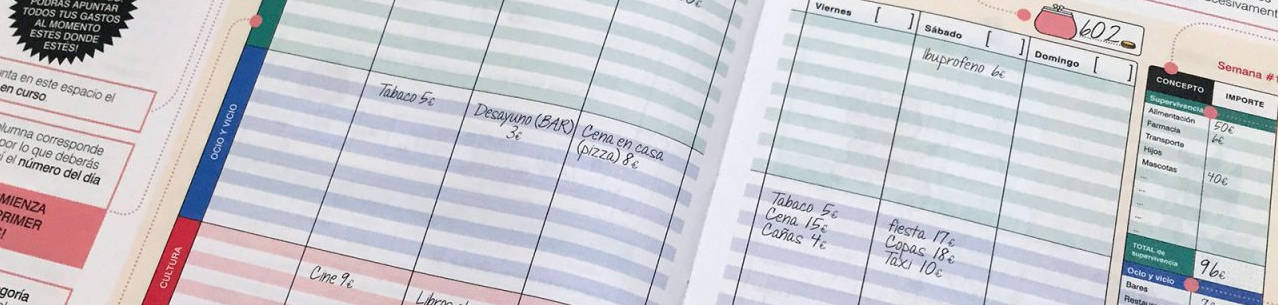 PODRÁS APUNTAR
TODOS TUS GASTOS
AL MOMENTO
ESTÉS DONDE
ESTÉS!
en este espacio el
en curso
columna corresponde
por lo que deberás
el número del día
PRIMER
OCIO Y VICIO
CULTURA
Tabaco 5€
Desayuno (BAR)
3€
Cena en casa
(pizza) 8€
Cine 9€
Viernes [ ]
Sábado [ ]
Domingo [ ]
602
Ibuprofeno 6€
Tabaco 5€
Cena 15€
Cañas 4€
fiesta 17€
Copas 18€
Taxi 10€
Semana #1
CONCEPTO IMPORTE
Supervivencia
Alimentación 50€
Farmacia 6€
Transporte
Hijos
Mascotas 40€
...
...
...
...
TOTAL de
supervivencia 96€
Ocio y vicio
Bares